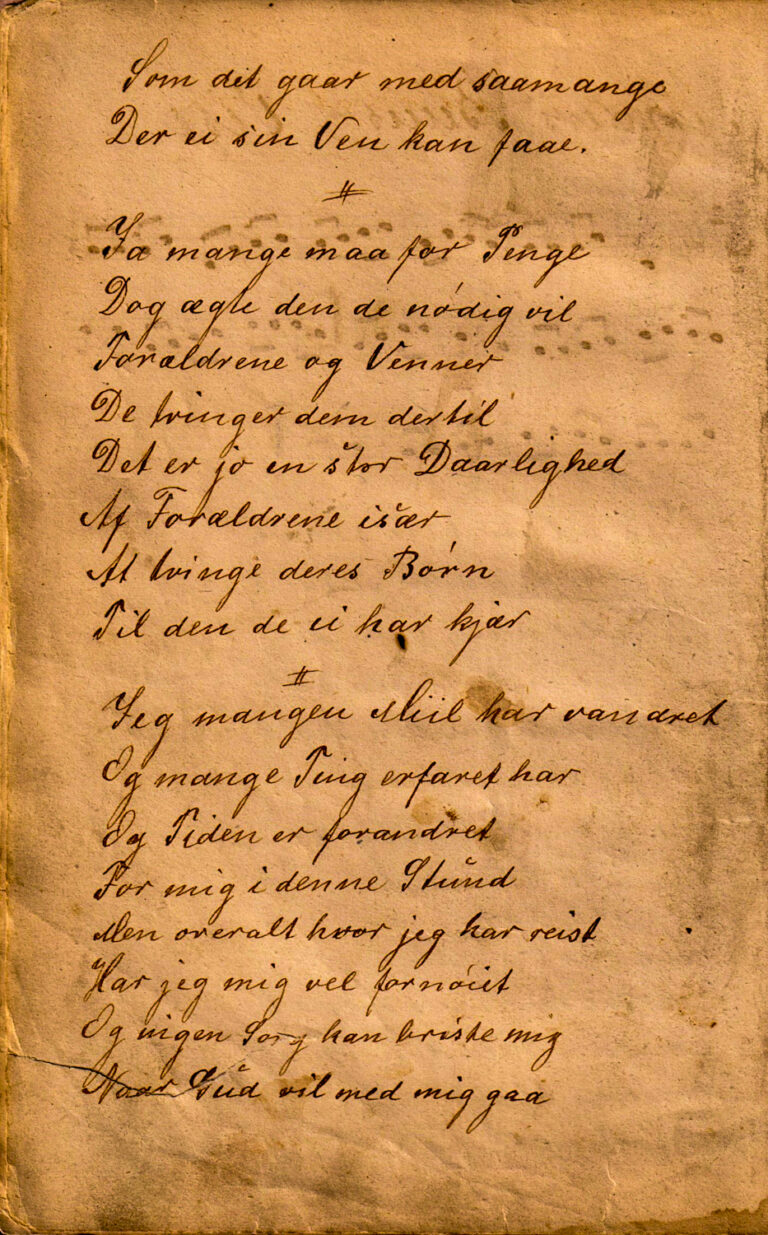 Som det gaar med saamange
Der ei sin Ven kan faae.
Ja mange maa for Penge
Dog ægte den de nódig vil
Forældrene og Venner
De tvinger dem dertil
Det er jo en stor Daarlighed
Af Forældrene især
At tvinge deres Børn
Til den de ei har kjær
Jeg mangen Miil har vandret
Og mange Ting erfaret har
Og Tiden er forandret
For mig i denne Stŭnd
Men overalt hvor jeg har reist
Har jeg mig vel fornóiet
Og ingen Sorg kan briste mig
Naar Gŭd vil med mig gaa